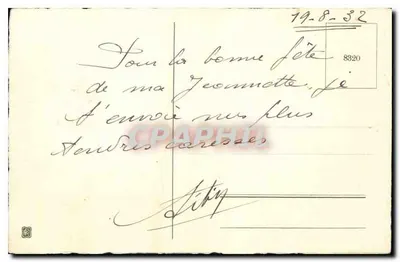 19-8-32
Pour la bonne fête
8320
de ma Jeannette, je
t'envoie mes plus
tendres caresses
CPARAMA